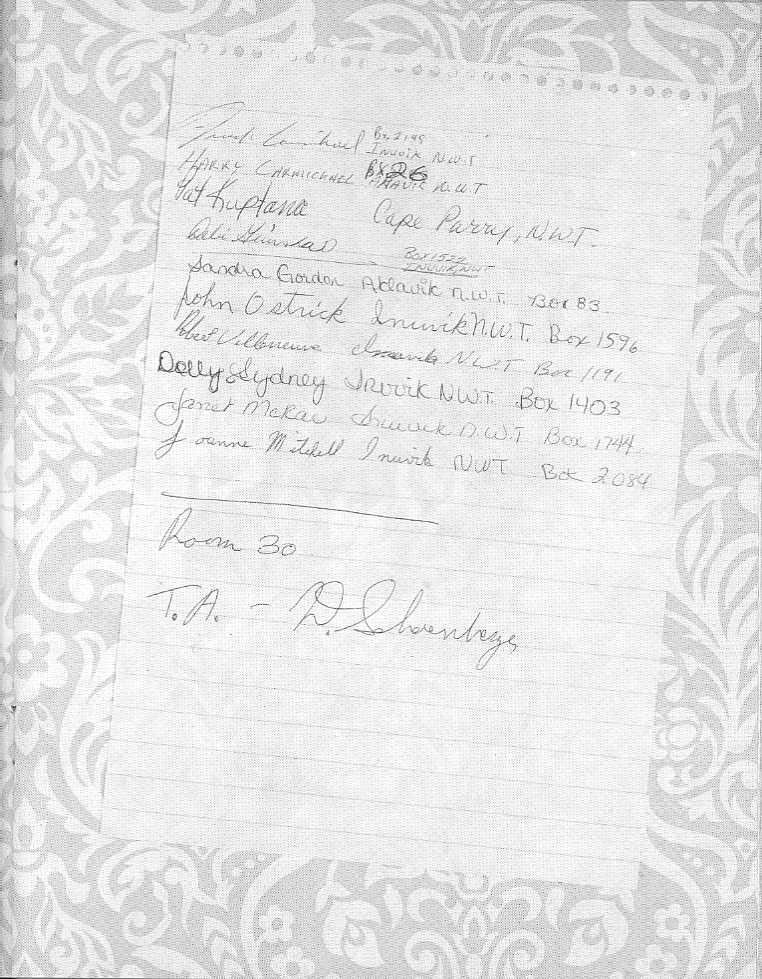 Carmichael Bx 2199
Inuvik N.W.T
HARRY CARMICHAEL BX 26
AKLAVIK N.W.T
Pat Kuptana Cape Parry, N.W.T.
Box 1522
INUVIK NWT
Sandra Gordon Aklavik N.W.T. Box 83
John Ostrick Inuvik N.W.T. Box 1596
Robert Villeneuve Inuvik N.W.T Box 1191
Dolly Sydney Inuvik N.W.T. Box 1403
Janet McKay Inuvik N.W.T Box 1744
Joanne Mitchell Inuvik NWT Box 2084
Room 30
T.A. - D. Schoenberger